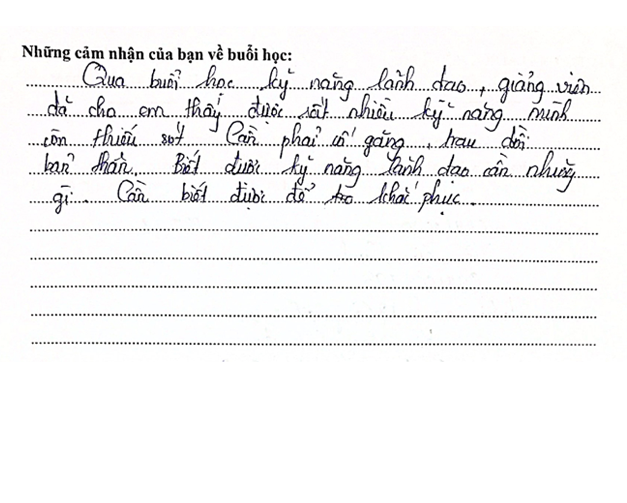 Những cảm nhận của bạn về buổi học:
Qua buổi học kỹ năng lãnh đạo, giảng viên
đã cho em thấy được rất nhiều kỹ năng mình
còn thiếu sót Cần phải cố gắng, trau dồi
bản thân. Biết được kỹ năng lãnh đạo cần những
gì. Cần biết được để khắc phục.